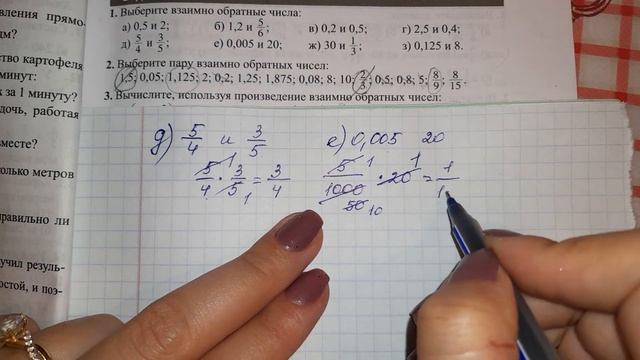 1. Выберите взаимно обратные числа:
а) 0,5 и 2; б) 1,2 и 5/6; в) 0,2 и 0,5; г) 2,5 и 0,4;
д) 5/4 и 3/5; е) 0,005 и 20; ж) 30 и 1/3; з) 0,125 и 8.
2. Выберите пару взаимно обратных чисел:
1,5; 0,05; 1,125; 2; 0,2; 1,25; 1,875; 0,08; 8; 10; 2/3; 0,5; 0,8; 5; 8/9; 8/15.
3. Вычислите, используя произведение взаимно обратных чисел:
прямо-
ство картофеля
минут:
за 1 минуту?
дочь, работая
вместе?
олько метров
равильно ли
учил резуль-
остой, и поэ-
д) 5/4 и 3/5 е) 0,005 20
5/4 · 3/5 = 3/4 5/1000 · 20 = 1/1
1 1 1 1
50 10